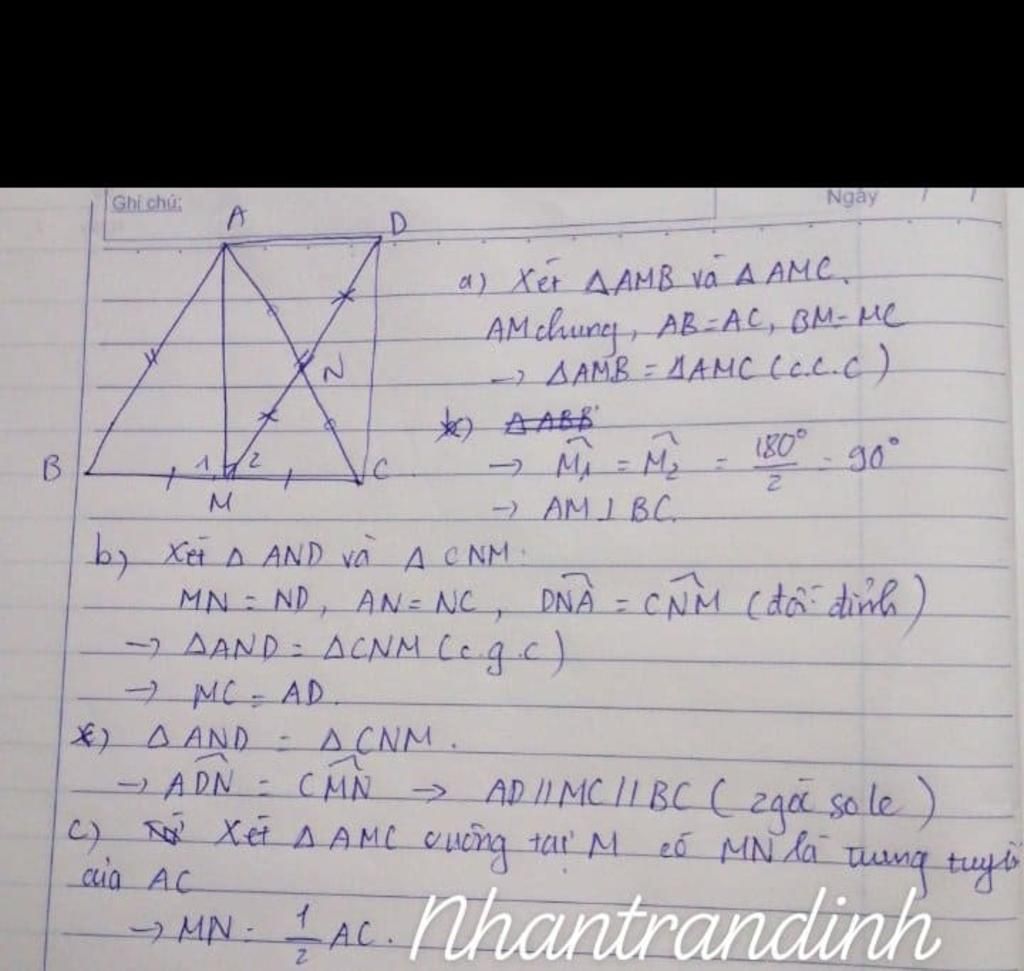 Ghi chú:
Ngày / /
A D
N
B 1 2 C
M
a) Xét ΔAMB và ΔAMC.
AM chung, AB=AC, BM=MC
→ ΔAMB = ΔAMC (c.c.c)
*) ΔABB
→ M̂₁ = M̂₂ = 180°/2 = 90°
→ AM⊥BC.
b) Xét Δ AND và Δ CNM.
MN = ND, AN=NC, DN̂A = CN̂M (đối đỉnh)
→ ΔAND = ΔCNM (c.g.c)
→ MC = AD.
*) ΔAND = ΔCNM.
→ AD̂N = CM̂N → AD//MC//BC (2góc sole)
c) Xét ΔAMC vuông tại M có MN là trung tuyến
của AC
→ MN = 1/2 AC.
Nhantrandinh